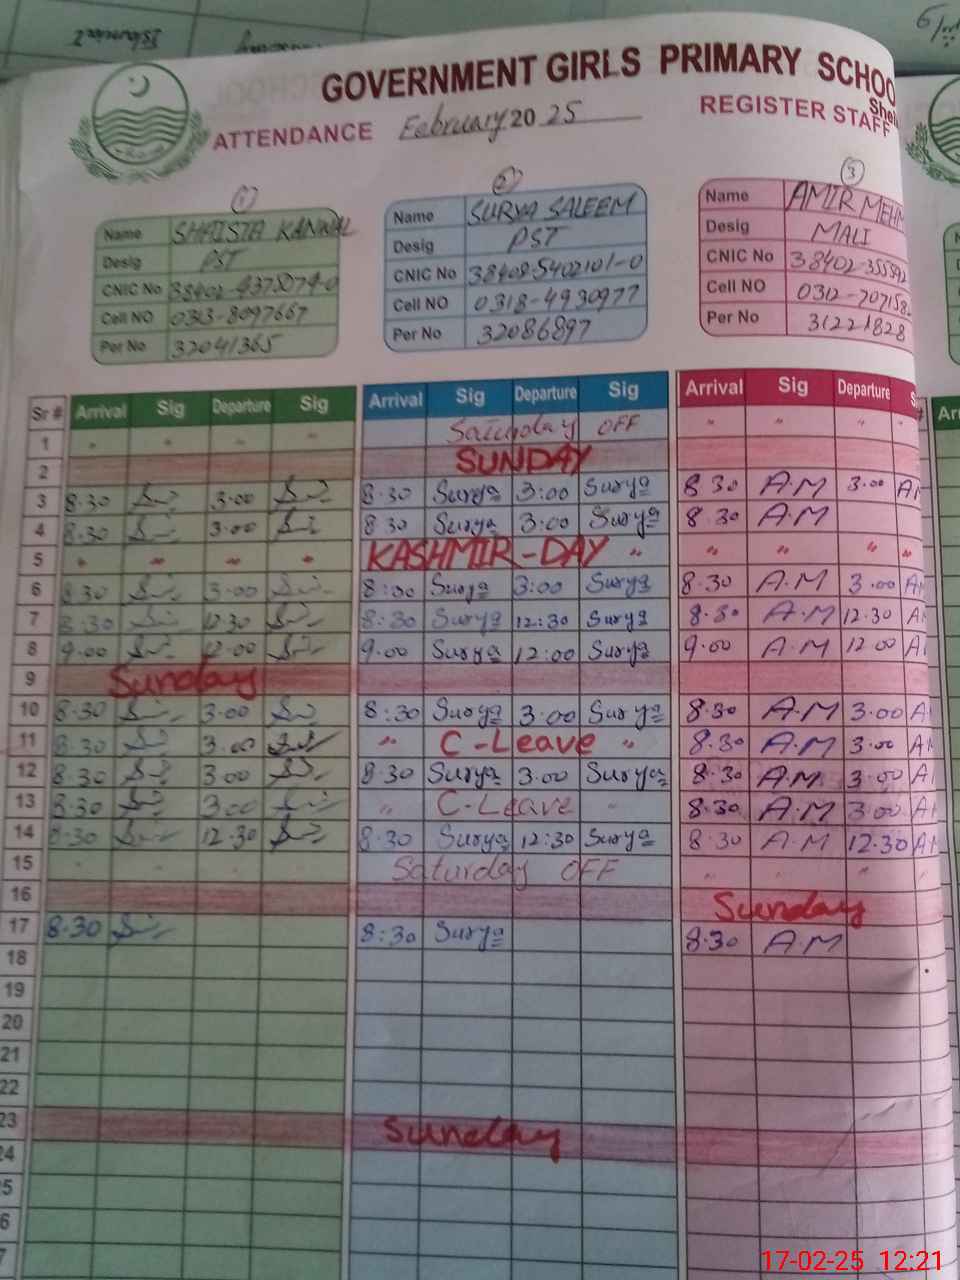 GOVERNMENT GIRLS PRIMARY SCHOO
ATTENDANCE February 2025 REGISTER STAFF
1 2 3
Name SHAISTA KANWAL Name SURYA SALEEM Name AMIR MEHM
Desig PST Desig PST Desig MALI
CNIC No CNIC No CNIC No
Cell NO 0313-8097667 Cell NO 0318-4930977 Cell NO
Per No 32041365 Per No 32086897 Per No 31221828
Sr # Arrival Sig Departure Sig Arrival Sig Departure Sig Arrival Sig Departure
1 " " " " Saturday OFF " " " "
2 SUNDAY
3 8.30 3.00 8.30 Surya 3:00 Surya 8.30 A.M 3.00
4 8.30 3.00 8.30 Surya 3:00 Surya 8.30 A.M
5 " " " " KASHMIR-DAY " " " " "
6 8.30 3.00 8:00 Surya 3:00 Surya 8.30 A.M 3.00
7 8.30 12.30 8:30 Surya 12:30 Surya 8.30 A.M 12.30
8 9.00 12.00 9.00 Surya 12:00 Surya 9.00 A.M 12.00
9 Sunday
10 8.30 3.00 8:30 Surya 3:00 Surya 8.30 A.M 3.00
11 8.30 3.00 " C-Leave " 8.30 A.M 3.00
12 8.30 3.00 8.30 Surya 3.00 Surya 8.30 A.M 3.00
13 8.30 3.00 " C-Leave " 8.30 A.M 3.00
14 8.30 12.30 8.30 Surya 12:30 Surya 8.30 A.M 12.30
15 " " " " Saturday OFF " " " "
16 Sunday
17 8.30 8:30 Surya 8.30 A.M
18
19
20
21
22
23 Sunday
24
5
6
7
17-02-25 12:21